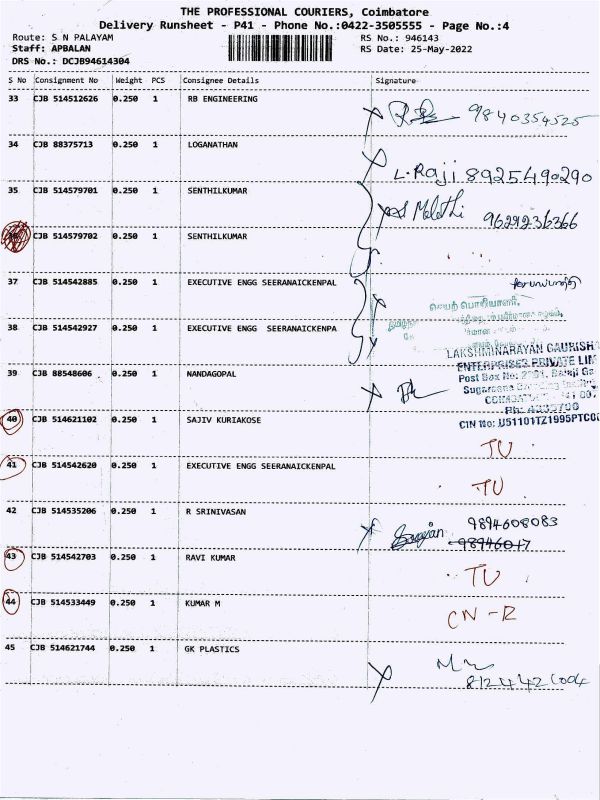 THE PROFESSIONAL COURIERS, Coimbatore
Delivery Runsheet - P41 - Phone No.:0422-3505555 - Page No.:4
Route: S N PALAYAM RS No.: 946143
Staff: APBALAN RS Date: 25-May-2022
DRS No.: DCJB94614304
S No Consignment No Weight PCS Consignee Details Signature
33 CJB 514512626 0.250 1 RB ENGINEERING
9840354525
34 CJB 88375713 0.250 1 LOGANATHAN
L. Raji 8925490290
35 CJB 514579701 0.250 1 SENTHILKUMAR
9629236366
CJB 514579702 0.250 1 SENTHILKUMAR
37 CJB 514542885 0.250 1 EXECUTIVE ENGG SEERANAICKENPAL
செயற் பொறியாளர்,
38 CJB 514542927 0.250 1 EXECUTIVE ENGG SEERANAICKENPA
LAKSHMINARAYAN GAURISH
ENTERPRISES PRIVATE LIM
39 CJB 88548606 0.250 1 NANDAGOPAL
Post Box No:
Sugarcane
CIN No: U51101TZ1995PTC00
40 CJB 514621102 0.250 1 SAJIV KURIAKOSE
TU
41 CJB 514542620 0.250 1 EXECUTIVE ENGG SEERANAICKENPAL
TU
42 CJB 514535206 0.250 1 R SRINIVASAN
9894608083
98946017
43 CJB 514542703 0.250 1 RAVI KUMAR
TU
44 CJB 514533449 0.250 1 KUMAR M
CN-R
45 CJB 514621744 0.250 1 GK PLASTICS